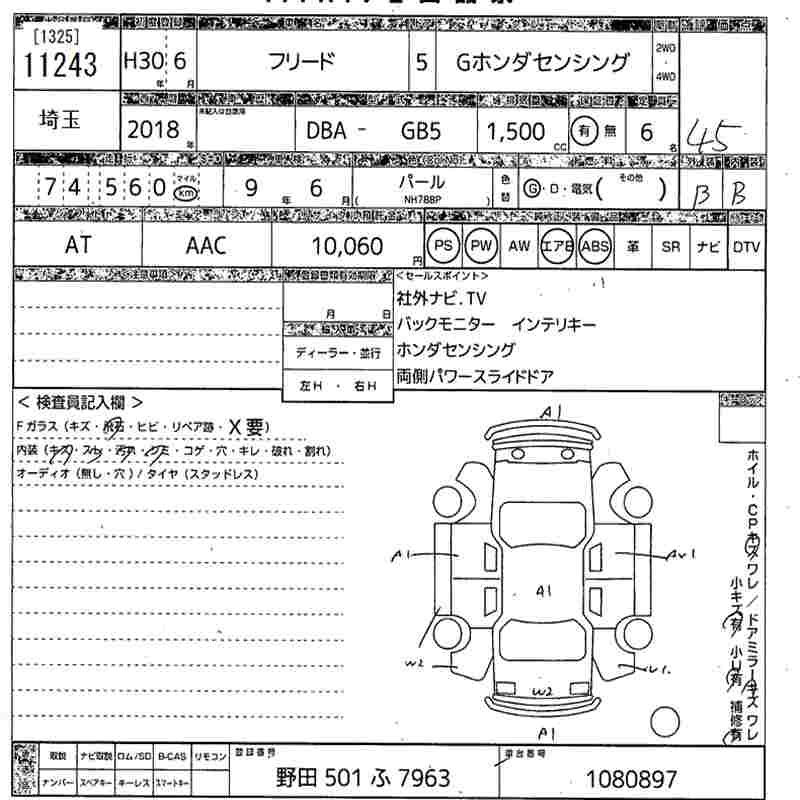 [1325]
11243
H30 年 6 月
フリード
5
Gホンダセンシング
2WD
・
4WD
埼玉
2018 年
未記入は当該年
DBA - GB5
1,500 CC
有 無
6 名
45
74560 マイル km
9 年 6 月
パール
( NH788P )
色替
G・D・電気( その他 )
B B
AT
AAC
10,060 円
PS PW AW エアB ABS 革 SR ナビ DTV
月 日
ディーラー・並行
左H ・ 右H
<セールスポイント>
社外ナビ.TV
バックモニター インテリキー
ホンダセンシング
両側パワースライドドア
< 検査員記入欄 >
Fガラス (キズ・飛石・ヒビ・リペア跡・X要)
内装 (キズ・スレ・汚れ・シミ・コゲ・穴・キレ・破れ・割れ)
オーディオ (無し・穴) / タイヤ (スタッドレス)
A1
A1
AU1
A1
W2
W2
U1.
A1
ホイル・CPキズワレ/ドアミラーキズワレ
小キズ有 小U有 補修有
取説 ナビ取説 ロム/SD B-CAS リモコン
ナンバー スペアキー キーレス スマートキー
登録番号
野田 501 ふ 7963
車台番号
1080897